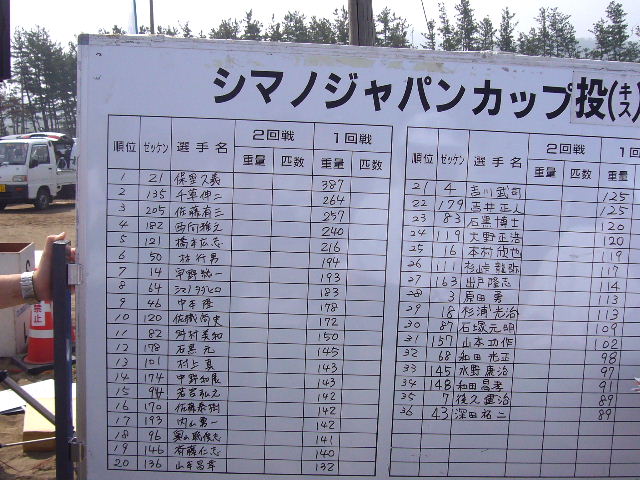 シマノジャパンカップ投(キス)
順位 ゼッケン 選手名 2回戦 1回戦
重量 匹数 重量 匹数
1 21 保里久義 387
2 135 千葉伸二 264
3 205 佐藤有三 257
4 182 西向雅之 240
5 121 橋本広志 216
6 50 林行男 194
7 14 平野 193
8 64 183
9 46 中本隆 178
10 120 佐機尚史 172
11 82 野村美和 150
12 178 石黒元 145
13 101 村上真 143
14 174 中野和展 143
15 94 若宮弘之 142
16 170 佐藤泰樹 142
17 193 内山勇一 142
18 96 141
19 146 斎藤仁志 140
20 136 山本昌幸 132
順位 ゼッケン 選手名 2回戦 1回
重量 匹数 重量
21 4 吉川武司 125
22 179 酒井正人 125
23 83 石黒博士 120
24 119 大野正浩 120
25 16 本村欣也 119
26 111 杉崎龍弥 117
27 163 出戸隆志 114
28 3 原田勇 113
29 18 杉浦光治 113
30 87 石塚元明 109
31 157 山本功作 102
32 68 和田光正 98
33 145 水野康治 97
34 148 和田昌孝 91
35 7 佳久建治 89
36 43 深田裕二 89